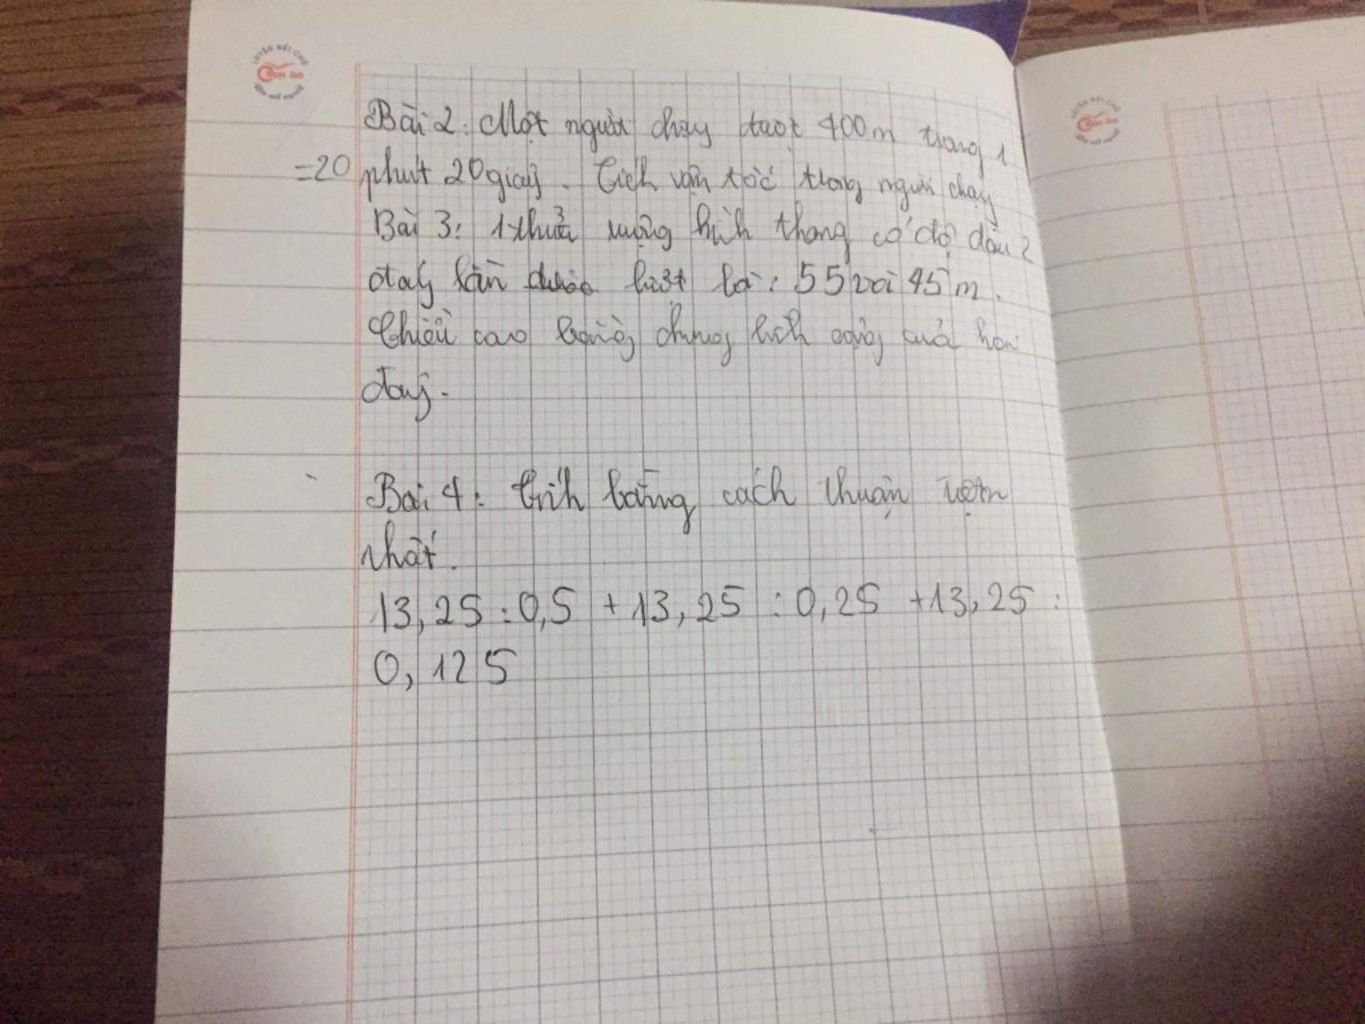 Bài 2: Một người chạy được 400m trong 1
=20 phút 20 giây. Tích vận tốc trong người chạy
Bài 3: 1 thửa ruộng hình thang có độ dầu 2
đáy lần lượt là: 55 và 45 m.
Chiều cao bằng chung bình cộng của hai
đáy.
Bài 4: Tính bằng cách thuận
nhất.
13,25 : 0,5 + 13,25 : 0,25 + 13,25 :
0,125